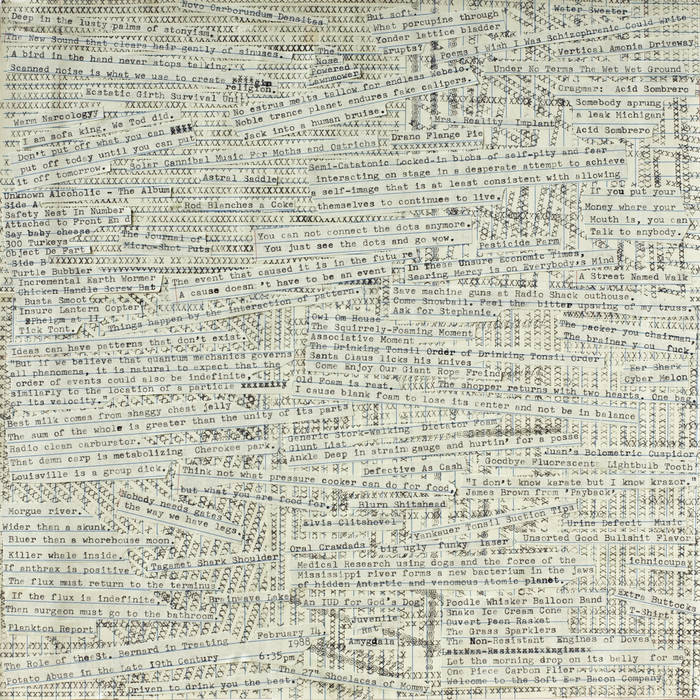 Novo Carborundum Densitas
Deep in the lusty palms of stonyism.
The New Sound that clears hair gently of sinuses.
A bird in the hand never stops talking.
Scanned noise is what we use to create religion.
Ecstatic Girth Survival Unit
The Nose Powered Lawnmower
But soft,
What porcupine through
Yonder lattice bladder
Erupts?
Water Sweater
Poems I Wish I Was Schizophrenic Could write
Vertical Amonia Driveway
Under No Terms The Wet Wet Ground
Crugmar: Acid Sombrero
No estrus melts tallow for endless
Noble trance planet endures fake calipers.
Jack into a human bruise.
Somebody sprung
a leak Michigan
Acid Sombrero
Mrs. Reality Implant
Drano Flange Pie
Warm Narcology
I am sofa king. We god did.
Don't put off what you can
put off today until you can put
it off tomorrow.
Solar Cannibal Music For Moths and Ostrichs
Astral Saddle
Semi-Catatonic Locked-in blobs of self-pity and fear
interacting on stage in desperate attempt to achieve
a self-image that is at least consistent with allowing
themselves to continue to live.
If you put your
Money where your
Mouth is, you can
Talk to anybody.
Unknown Alcoholic - The Album
Side A
Safety Nest In Number
Attached to Front En
Say baby cheese
300 Turkeys
Object De Part
Side B
Turtle Bubbler
Incremental Earth Wormer
Chicken Handle Screw Bat
Busta Smoot
Insure Lantern Copter
Ink Tont.
Rod Blanches a Coke
The Journal of
Micro-Shot Puts
You can not connect the dots anymore.
You just see the dots and go wow.
Pesticide Farm
The event that caused it is in the future
A cause doesn't have to be an event
Things happen by the interaction of patterns
In The Unsure Economic Times,
Sparing Mercy is on Everybody's Mind
Save machine guns e Radio Shack outhouse.
Come Snowbird Feel the bitter spawling of trust.
Ask for Stephanie.
A Streets Named Walk
Owl Om House
The Squirrely-Foaming Moment
Associative Moment
The Drinking Tonsil Order of Drinking Tonsil Order
Santa Claus licks his knives
Come enjoy Our Giant Rope Preing
The sacker you chairman,
The brainer you
Ear Shark
Cyber Melon
Ideas can have patterns that don't exist
"But if we believe that quantum mechanics governs
all phenomena, it is natural to expect that the
order of events could also be indefinite,
similarly to the location of a particle
or its velocity."
Old Foam is rest.
The shopper returns with two hearts. One bag
I cause blank foam to lose its center and not be in balance
Best milk comes from shaggy chest jelly
The sum of the whole is greater than the unity of its parts
Radio clean carburstor.
That damn carp is metabolizing Cherokee park.
Louisville is a group dick.
Generic Stork-Walking Dictator Foam
Glunt List
Ankle Deep in strain gauge and for a posse
Think not what pressure cooker can do for
but what you are food for.
Defective As Cash
Juan's Bolometric Cuspidor
Goodbye Fluorescent Lightbulb Tooth
"I don't know karate but I know krazor."
James Brown from "Payback"
Morgue river.
Nobody needs
the way we have legs.
Blurn Shitahead
Elvis Clitshovel
Yankauer Tonsil Suction Tips
Urine Defecit Music
Unsorted Good Bullshit Flavor
Wider than a skunk.
Bluer than a whorehouse moon.
Killer whale inside.
If anthrax is positive
The flux must return to the terminus
If the flux is indefinite
Then surgeon must go to the bathroom
Tagamet Shark Shoulder
Brainwave Lake
Oral Crawdads
big ugly funky laser
Medical Research using dogs and the force of the
Mississippi river forms a new bacterium in the jaws
of hidden Antartic and venomous Atomic planet.
An IUD for God's Dog
Juvenile
Amygdala
Poodle Whisker Balloon Band
Snake Ice Cream Cone
Ouvert Peen Rasket
The Grass Sparklers
The Non-Existant Engines of Doves
Extra Buttocks
T-Shirt
Let the morning drop on its belly for me
One Piece Carbon Filer
Come to the Soft Ear Bacon Company
Plankton Report
February 14,
1988
6:35pm
The Role of the St. Bernard in Treating
Potato Abuse in the Late 19th Century
The 27" Shoelaces of Mommy
Driven to drink you the best.